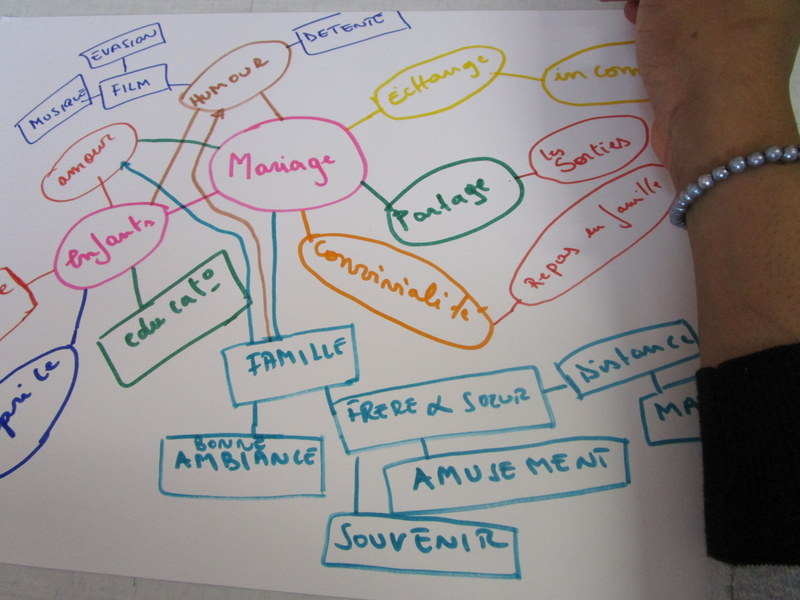 EVASION
DETENTE
MUSIQUE
FILM
HUMOUR
ÉCHANGE
in com
amour
Mariage
les
Sorties
Partage
enfants
Repas en famille
Convivialité
educato
FAMILLE
Distance
FRERE & SOEUR
MA
BONNE
AMBIANCE
AMUSEMENT
SOUVENIR